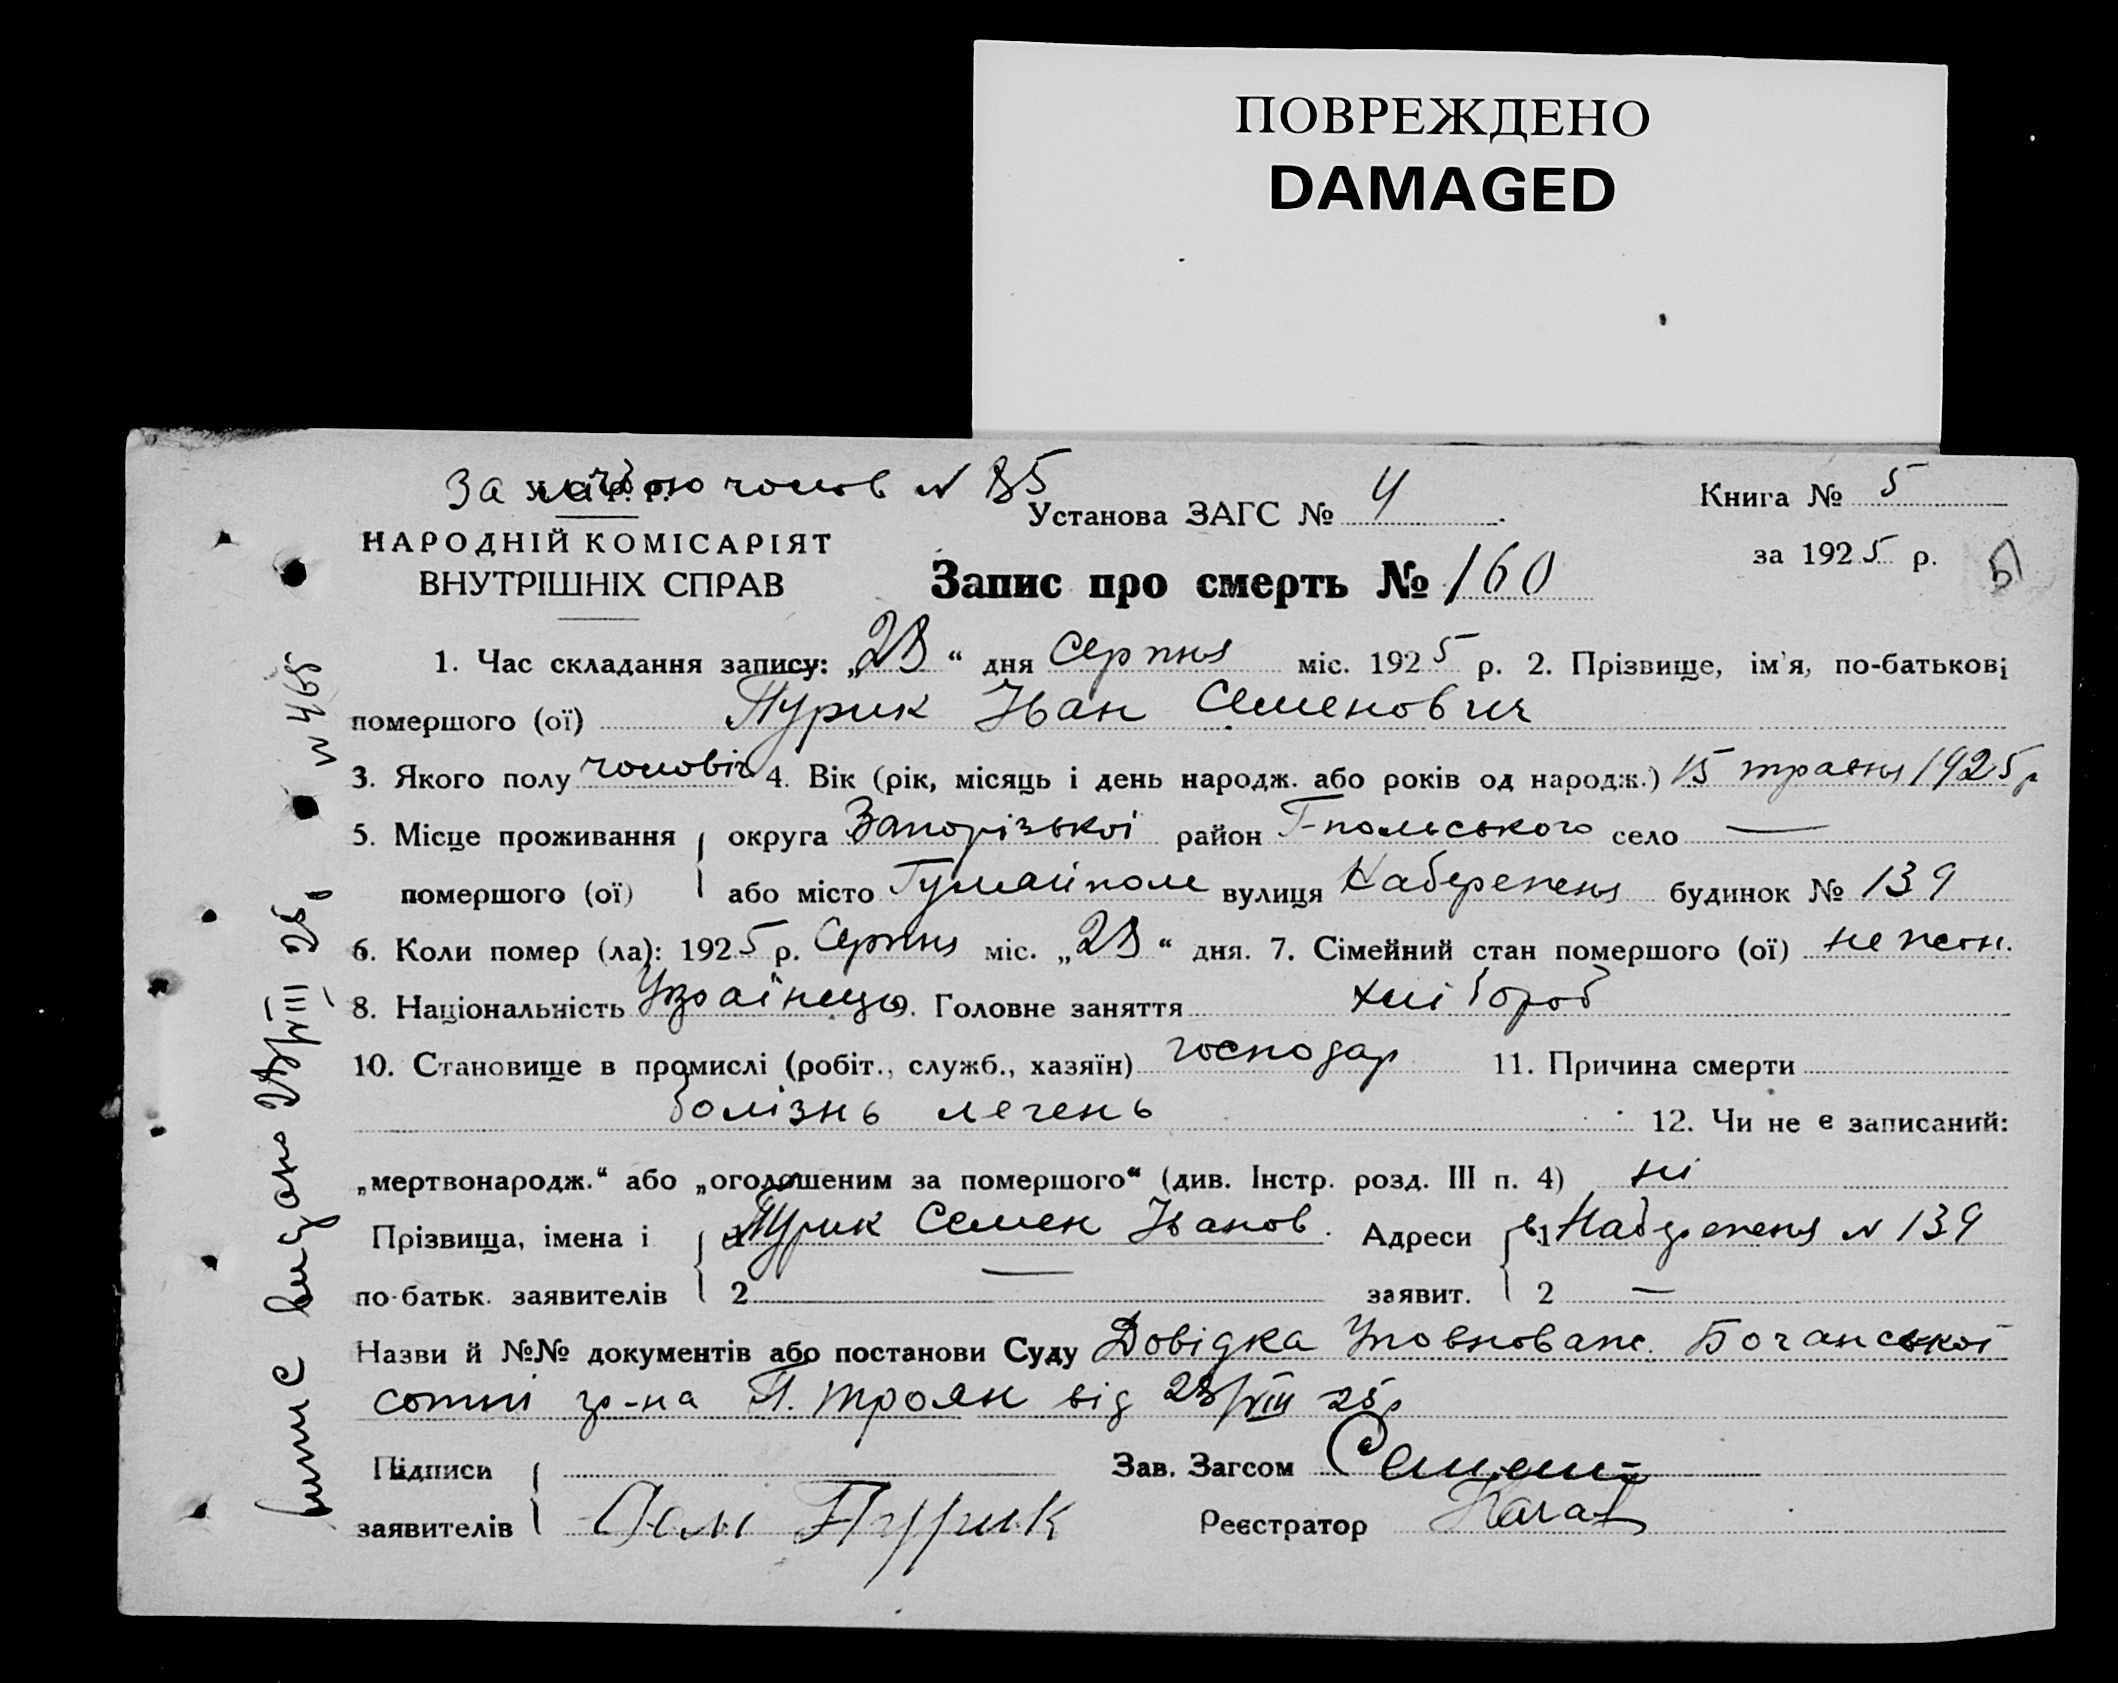 ПОВРЕЖДЕНО
DAMAGED
За чолов № 85
Установа ЗАГС № 4
Книга № 5
НАРОДНІЙ КОМІСАРІЯТ
ВНУТРІШНІХ СПРАВ
Запис про смерть № 160
за 1925 р.
1. Час складання запису: „28“ дня Серпня міс. 1925 р. 2. Прізвище, ім'я, по-батькові
помершого (ої) Пурик Іван Семенович
3. Якого полу чоловіч 4. Вік (рік, місяць і день народж. або років од народж.) 15 травня 1925 р
5. Місце проживання округа Запорізької район Г-польського село —
помершого (ої) або місто Гуляйполе вулиця Набережня будинок № 139
6. Коли помер (ла): 1925 р. Серпня міс. „28“ дня. 7. Сімейний стан помершого (ої)
8. Національність Українець 9. Головне заняття хлібороб
10. Становище в промислі (робіт., служб., хазяїн) господар 11. Причина смерти
болізнь легень 12. Чи не є записаний:
„мертвонародж.“ або „оголошеним за помершого“ (див. Інстр. розд. III п. 4) ні
Прізвища, імена і 1 Пурик Семен Іванов. Адреси 1 Набережня № 139
по-батьк. заявителів 2 — заявит. 2 —
Назви й №№ документів або постанови Суду Довідка Уповноваж. Бочанської
сотні гр-на П. Троян від 28/VIII 25 р
Підписи Зав. Загсом
заявителів Сем Пурик Реєстратор
випис видано 28/VIII 25 р № 465